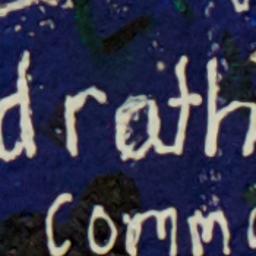 drath
comm